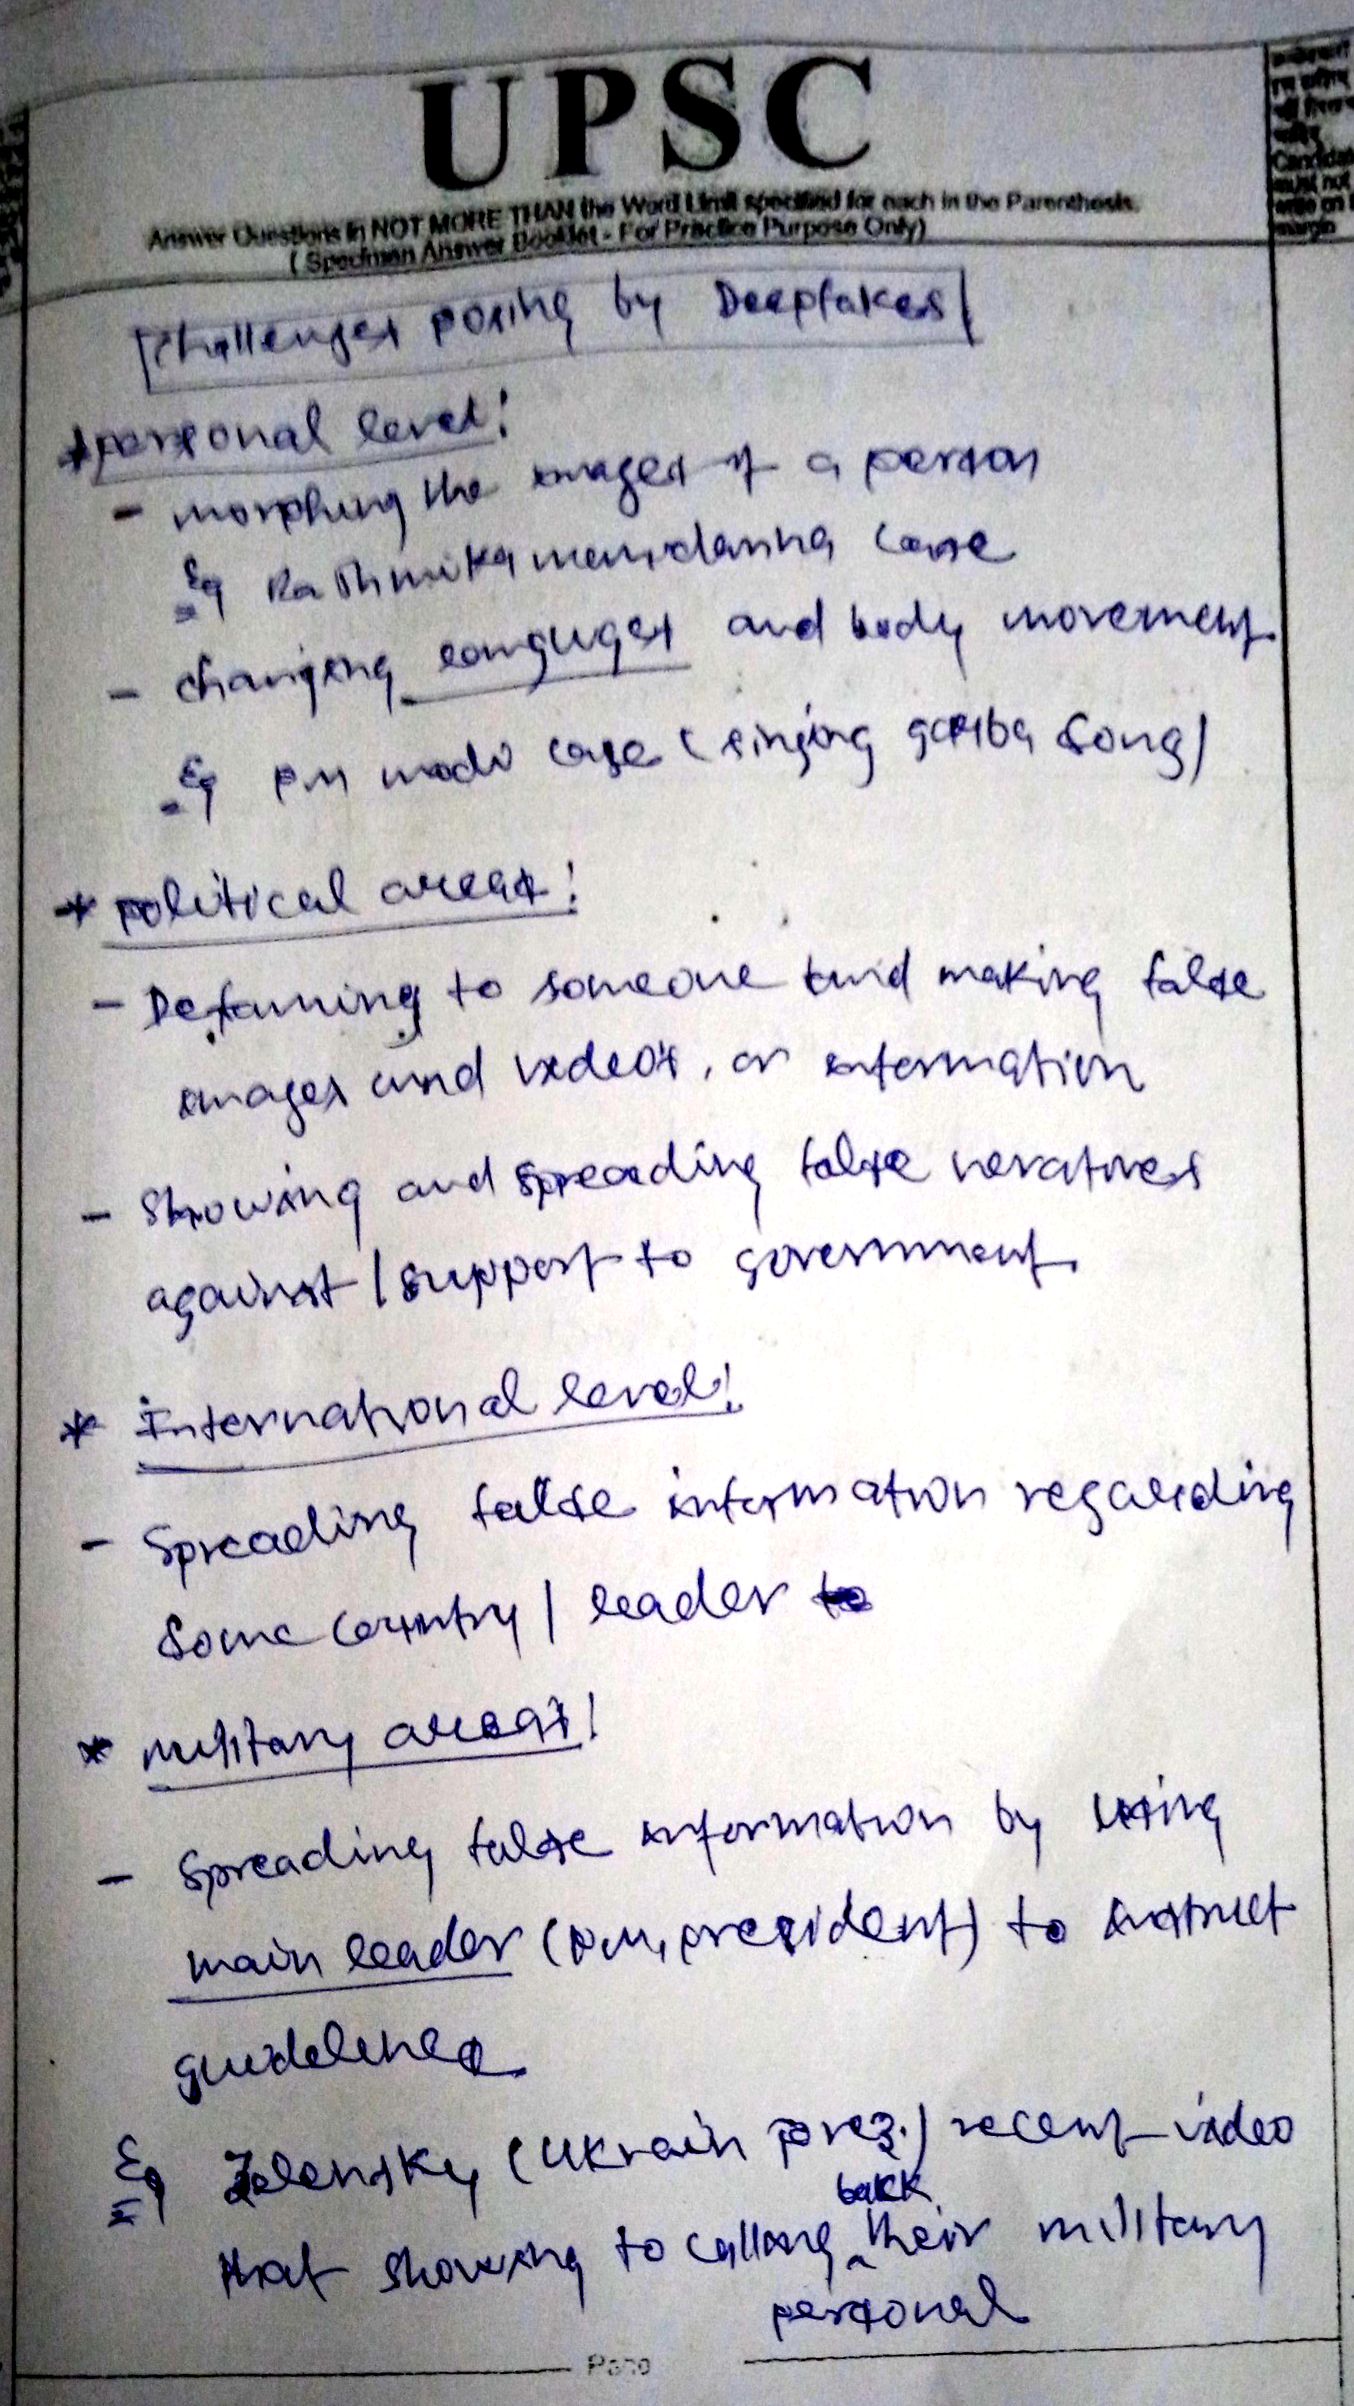 UPSC
Answer Questions in NOT MORE THAN the Word Limit specified for each in the Parenthesis.
( Specimen Answer Booklet - For Practice Purpose Only)
Candidate
must not
write on
margin
Challenges posing by Deepfakes
* personal level:
- morphing the images of a person
Eg Rashmika mandanna case
- changing languges and body movement.
Eg PM modi case (singing garba song)
* political areas:
- Defaming to someone and making false
images and video's, or information
- Showing and spreading false neratives
against / support to government.
* International level:
- Spreading false information regarding
some country / leader
* military areas:
- Spreading false information by using
main leader (PM, president) to instruct
guidelines
Eg Zelensky (Ukrain prez.) recent video
that showing to calling back their military
personal
Page